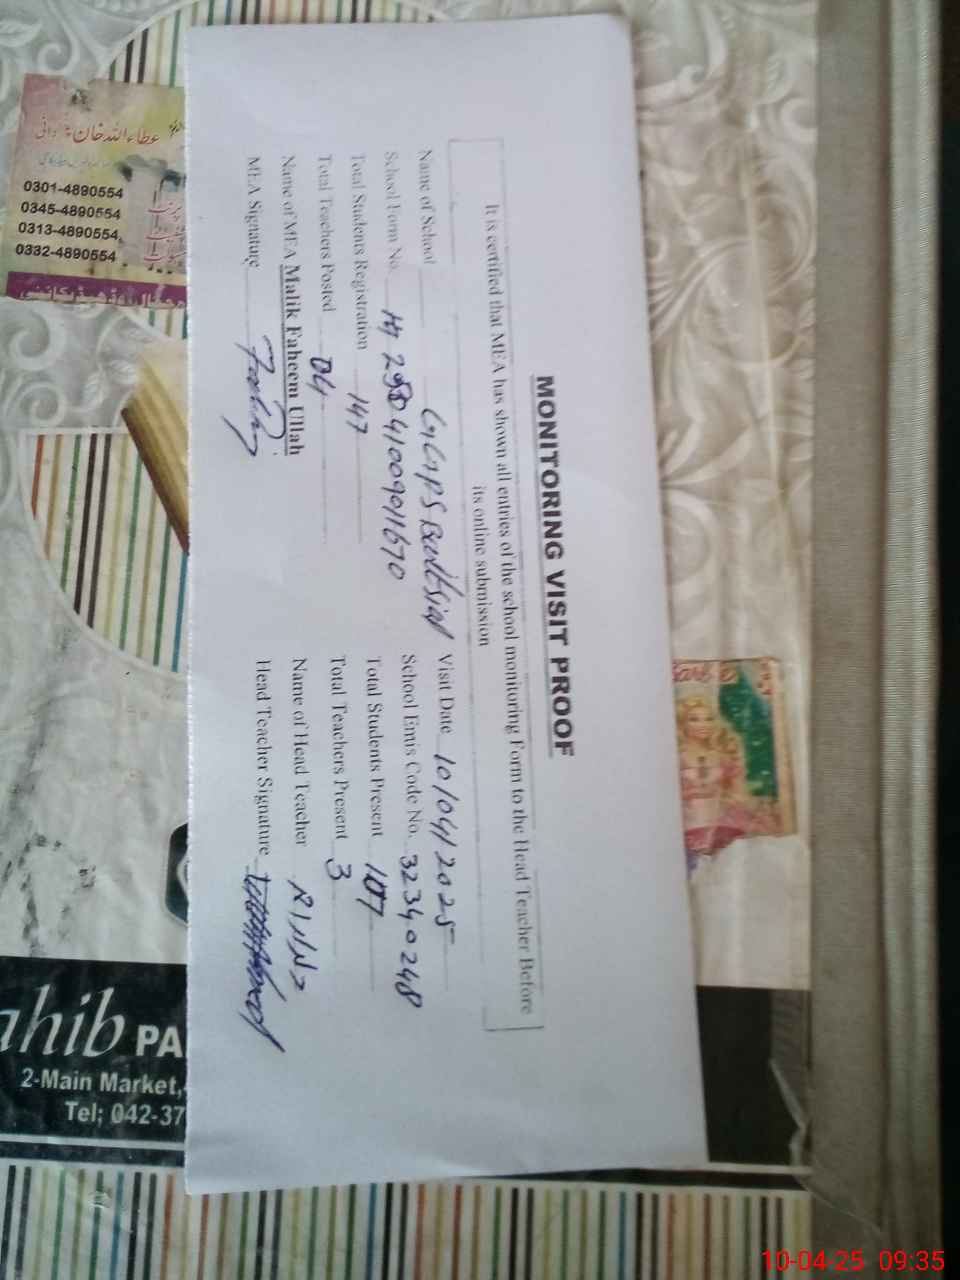 MONITORING VISIT PROOF
It is certified that MEA has shown all entries of the school monitoring Form to the Head Teacher Before
its online submission
Name of School GGPS Visit Date 10/04/2025
School Form No. School Emis Code No. 32340248
Total Students Registration 147 Total Students Present 107
Total Teachers Posted 04 Total Teachers Present 3
Name of MEA Malik Faheem Ullah Name of Head Teacher
MEA Signature Head Teacher Signature
عطاء اللہ خان
0301-4890554
0345-4890554
0313-4890554
0332-4890554
ahib PA
2-Main Market,
Tel; 042-37
10-04-25 09:35